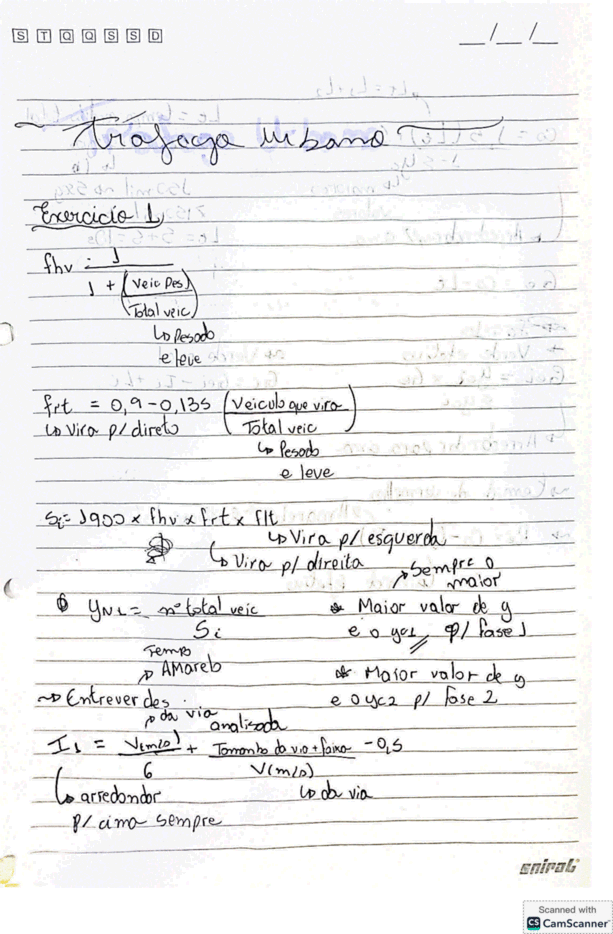 S T Q Q S S D
__/__/__
Tráfago Urbano
Exercício 1
fhv = 1
1 + (Veic Pes)
(Total veic)
↳ Pesado
e leve
frt = 0,9 - 0,135 (Veiculo que vira)
↳ Vira p/ direto (Total veic)
↳ Pesado
e leve
Si = 1900 x fhv x frt x flt
↳ Vira p/ esquerda
↳ Vira p/ direita
↗ Sempre o
maior
YNL = nº total veic * Maior valor de y
Si e o yc1 p/ fase 1
Tempo
↗ Amarelo * Maior valor de y
~> Entreverdes e o yc2 p/ fase 2
↗ da via
analisada
I1 = V(m/s) + Tamanho da via + faixa - 0,5
6 V(m/s)
↳ arredondar ↳ da via
p/ cima sempre
spiral
Scanned with
CS CamScanner